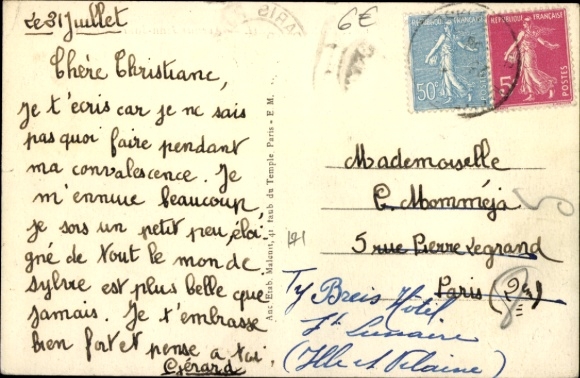 Le 31 Juillet
6€
Chère Christiane,
Je t'écris car je ne sais
pas quoi faire pendant
ma convalescence. Je
m'ennuie beaucoup
je sors un petit peu, éloi-
gné de tout le mon de
sylvie est plus belle que
jamais. Je t'embrasse
bien fort et pense a toi
Gérard
Anc. Etab. Malcuit, 41 faub du Temple Paris - E M.
REPUBLIQUE FRANÇAISE
50c
POSTES
REPUBLIQUE FRANÇAISE
POSTES
PARIS
Mademoiselle
C. Momméja
5 rue Pierre Legrand
Paris
Ty Breis Hôtel
St Lunaire
(Ille et Vilaine)